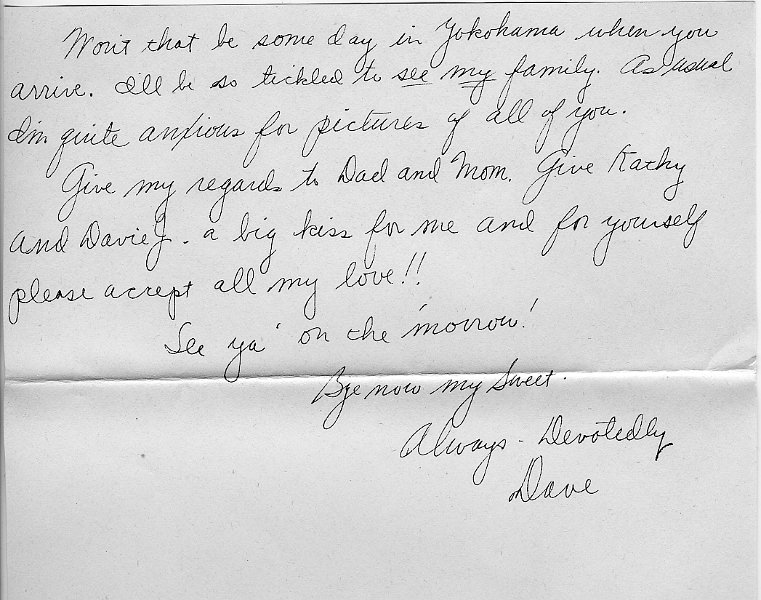 Won't that be some day in Yokohama when you
arrive. I'll be so tickled to see my family. As usual
I'm quite anxious for pictures of all of you.
Give my regards to Dad and Mom. Give Kathy
and Davie J. a big kiss for me and for yourself
please accept all my love!!
See ya' on the 'morrow!
Bye now my Sweet.
Always - Devotedly
Dave